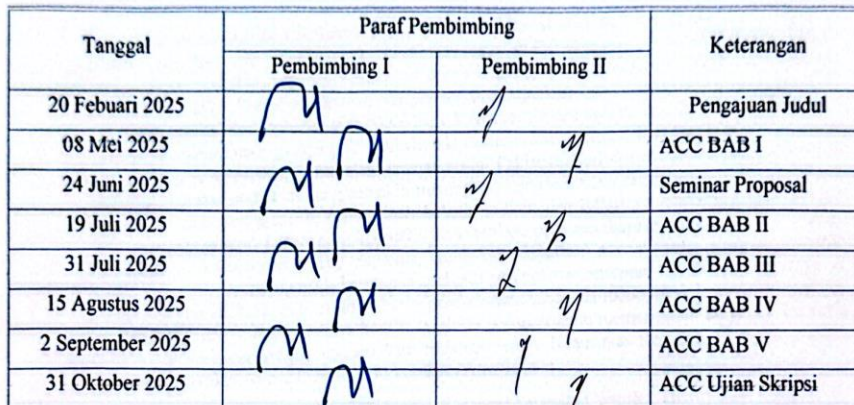 Tanggal Paraf Pembimbing Keterangan
Pembimbing I Pembimbing II
20 Febuari 2025 Pengajuan Judul
08 Mei 2025 ACC BAB I
24 Juni 2025 Seminar Proposal
19 Juli 2025 ACC BAB II
31 Juli 2025 ACC BAB III
15 Agustus 2025 ACC BAB IV
2 September 2025 ACC BAB V
31 Oktober 2025 ACC Ujian Skripsi